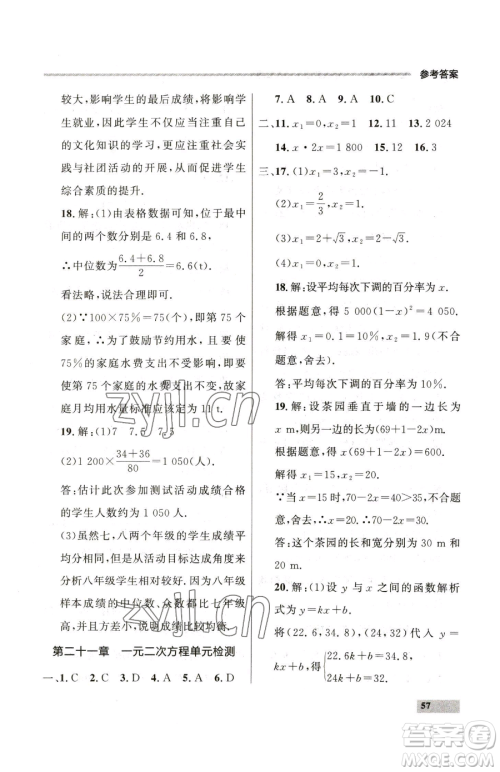 参考答案
较大,影响学生的最后成绩,将影响学
生就业,因此学生不仅应当注重自己
的文化知识的学习,更应注重社会实
践与社团活动的开展,从而促进学生
综合素质的提升.
18.解:(1)由表格数据可知,位于中
间的两个数分别是 6.4 和 6.8,
∴中位数为(6.4+6.8)/2=6.6(t).
看法略,合理即可.
(2)∵100×75%=75(个),即第 75 个
家庭,∴为了鼓励节约用水,要使
75%的家庭水费支出不受影响,即要
使第 75 个家庭的水费不超支,故家庭
月均用水量标准应该定为 11 t.
19.解:(1)7 7.5 7.5
(2)1 200×(34+36)/80=1 050(人).
答:估计此次参加测试活动成绩合格
的学生人数约为 1 050 人.
(3)虽然七、八两个年级的学生成绩平
均数一样,但是从中位数和众数来
分析八年级学生比较好,因为八年级
样本成绩的中位数、众数都比七年级
高,并且八年级比较均衡.
第二十一章 一元二次方程单元检测
一、1.C 2.C 3.D 4.A 5.A 6.D
7.A 8.A 9.A 10.C
二、11.x₁=0,x₂=1 12.11 13.2 024
14.x·2x=1 800 15.12 16.3
三、17.(1)x₁=3,x₂=-1.
(2)x₁=2/3,x₂=1.
(3)x₁=2+√3,x₂=2-√3.
(4)x₁=0,x₂=1.
18.解:设平均每次下调的百分率为 x.
根据题意,得 5 000(1-x)²=4 050.
解得 x₁=0.1=10%,x₂=1.9(不合
题意,舍去).
答:平均每次下调的百分率为 10%.
19.解:设茶园垂直于墙的一边长为
x m,则另一边长为(69+1-2x)m.
根据题意,得 x(69+1-2x)=600.
解得 x₁=15,x₂=20.
∵当 x=15 时,70-2x=40>35,不合题
意,舍去.
答:这个茶园的长和宽分别为 30 m 和
20 m.
20.解:(1)设 y 与 x 之间的函数解析
式为 y=kx+b.
将(22.6,34.8),(24,32)代入 y=
kx+b,得{22.6k+b=34.8,
24k+b=32.
57
zyjl.cn
zyjl.cn
答案圈
MXQE.COM